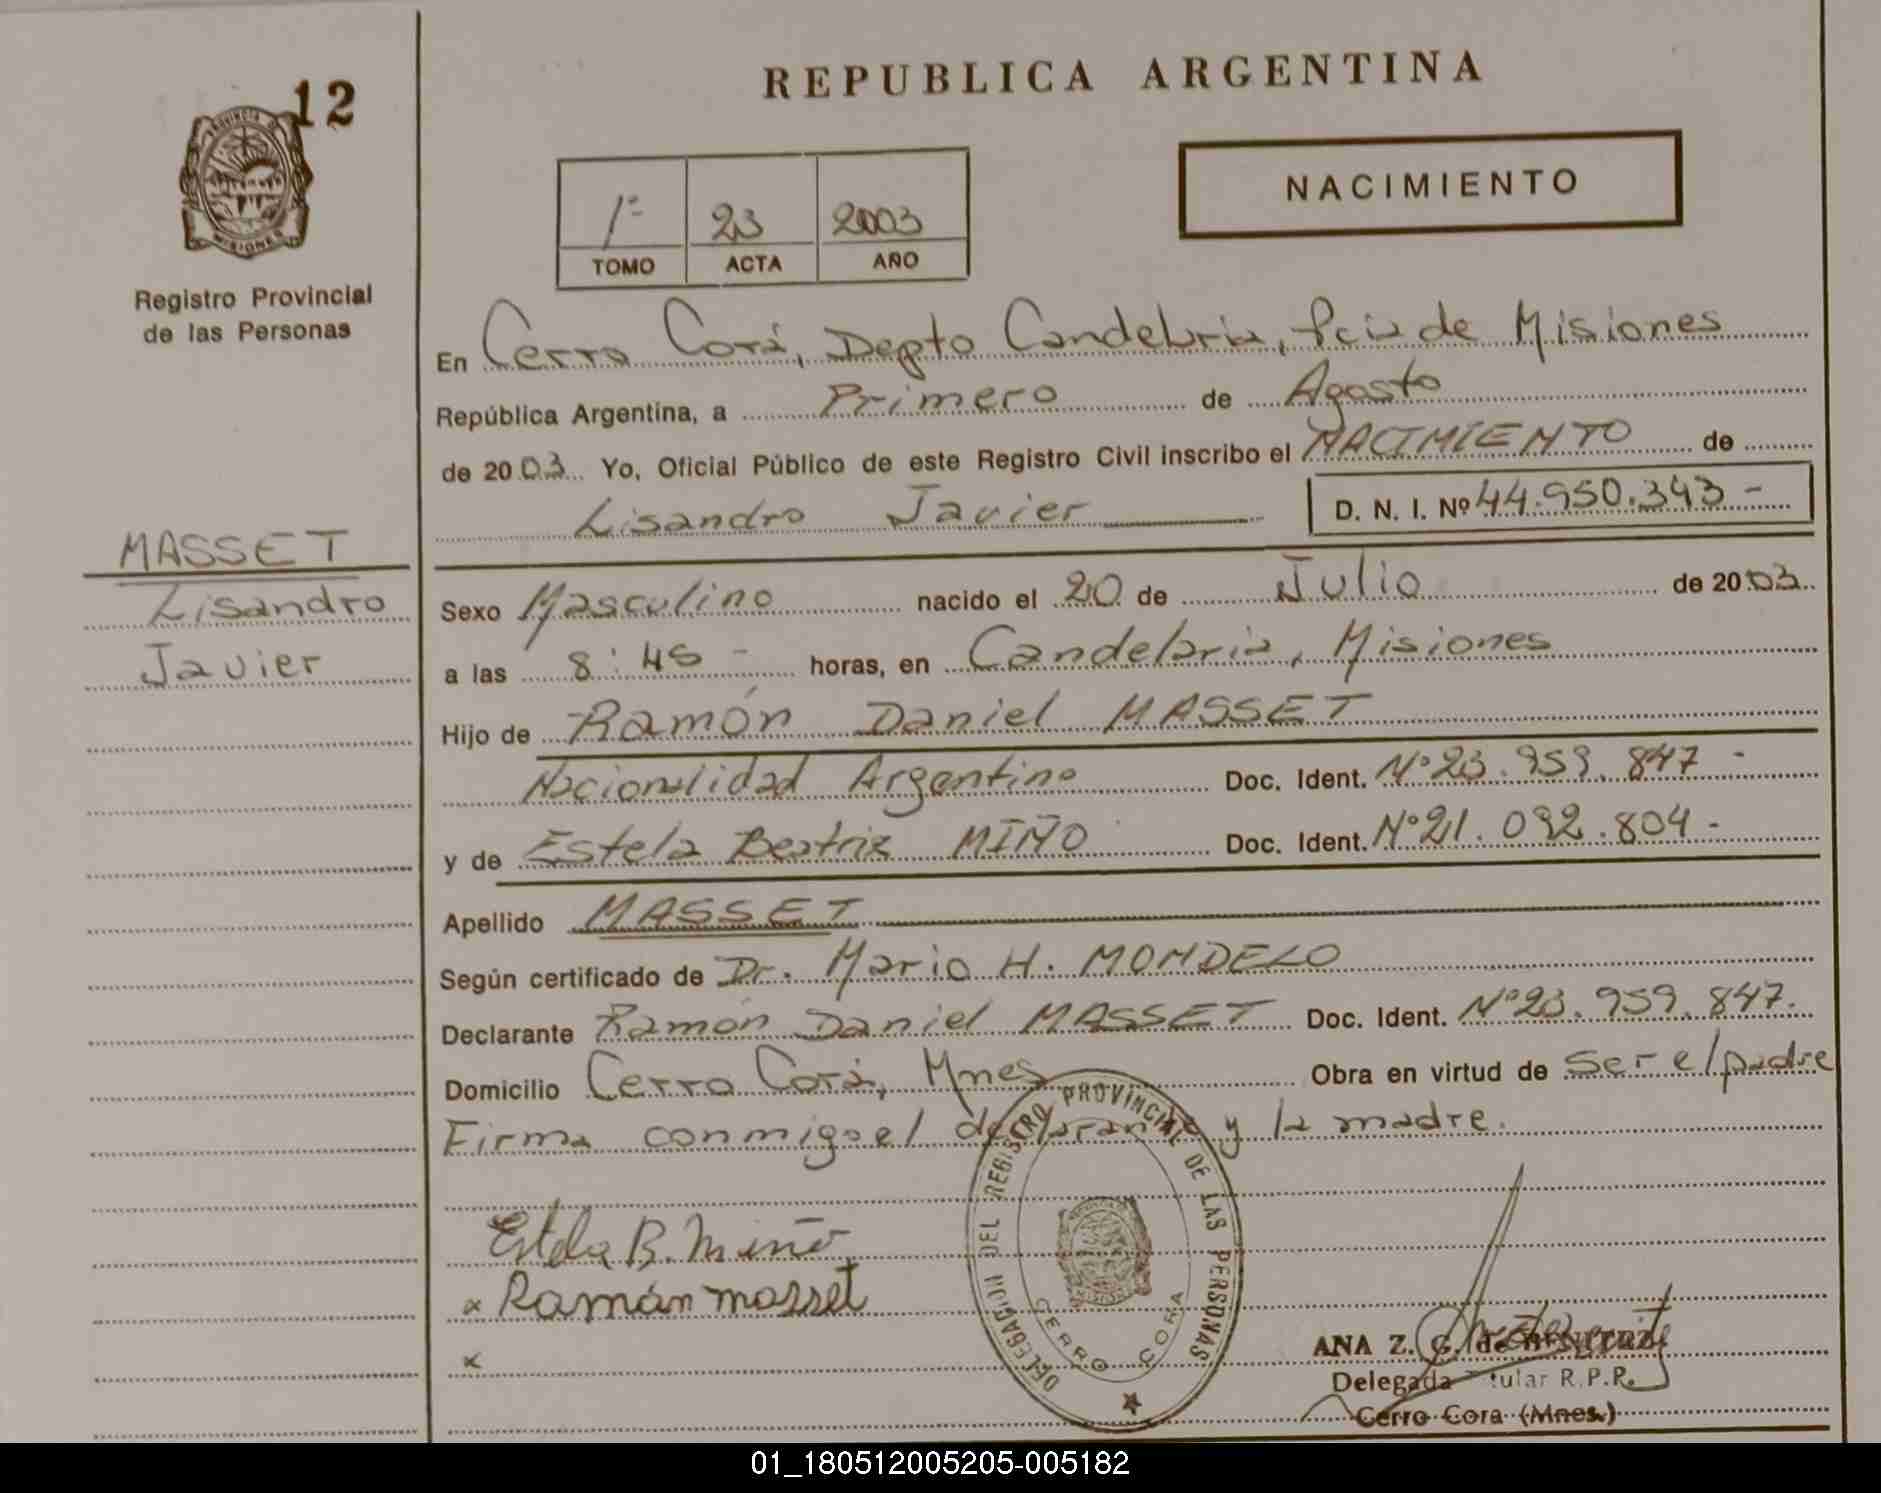 12
PROVINCIA DE
MISIONES
Registro Provincial
de las Personas
MASSET
Lisandro
Javier
REPUBLICA ARGENTINA
NACIMIENTO
1º 23 2003
TOMO ACTA AÑO
En Cerro Corá, Depto Candelaria, Pcia de Misiones
República Argentina, a Primero de Agosto
de 2003 Yo, Oficial Público de este Registro Civil inscribo el NACIMIENTO de
Lisandro Javier D. N. I. Nº 44.950.343 -
Sexo Masculino nacido el 20 de Julio de 2003
a las 8:45 - horas, en Candelaria, Misiones
Hijo de Ramón Daniel MASSET
Nacionalidad Argentino Doc. Ident. Nº 23.959.847 -
y de Estela Beatriz MIÑO Doc. Ident. Nº 21.092.804 -
Apellido MASSET
Según certificado de Dr. Mario H. MONDELO
Declarante Ramón Daniel MASSET Doc. Ident. Nº 23.959.847.
Domicilio Cerro Corá, Mnes Obra en virtud de ser el padre
Firma conmigo el declarante y la madre.
Estela B. Miño
x Ramón masset
x
DELEGACION DEL REGISTRO PROVINCIAL DE LAS PERSONAS
CERRO CORA
ANA Z. G. de
Delegada Titular R.P.P.
Cerro Cora (Mnes.)
01_180512005205-005182